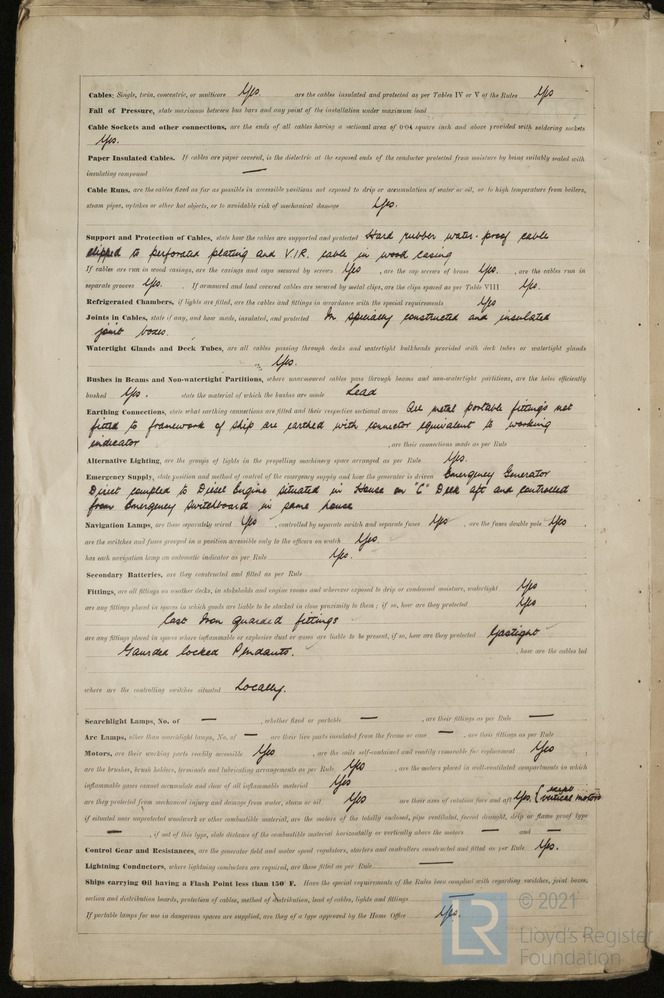 Cables: Single, twin, concentric, or multicore Yes are the cables insulated and protected as per Tables IV or V of the Rules Yes
Fall of Pressure, state maximum between bus bars and any point of the installation under maximum load
Cable Sockets and other connections, are the ends of all cables having a sectional area of 0·04 square inch and above provided with soldering sockets
Yes.
Paper Insulated Cables. If cables are paper covered, is the dielectric at the exposed ends of the conductor protected from moisture by being suitably sealed with
insulating compound —
Cable Runs, are the cables fixed as far as possible in accessible positions not exposed to drip or accumulation of water or oil, or to high temperature from boilers,
steam pipes, uptakes or other hot objects, or to avoidable risk of mechanical damage Yes.
Support and Protection of Cables, state how the cables are supported and protected Hard rubber water-proof cable
clipped to perforated plating and V.I.R. cable in wood casing
If cables are run in wood casings, are the casings and caps secured by screws Yes , are the cap screws of brass Yes. , are the cables run in
separate grooves Yes. . If armoured and lead covered cables are secured by metal clips, are the clips spaced as per Table VIII Yes.
Refrigerated Chambers, if lights are fitted, are the cables and fittings in accordance with the special requirements Yes
Joints in Cables, state if any, and how made, insulated, and protected In specially constructed and insulated
joint boxes.
Watertight Glands and Deck Tubes, are all cables passing through decks and watertight bulkheads provided with deck tubes or watertight glands
Yes.
Bushes in Beams and Non-watertight Partitions, where unarmoured cables pass through beams and non-watertight partitions, are the holes efficiently
bushed Yes. state the material of which the bushes are made Lead
Earthing Connections, state what earthing connections are fitted and their respective sectional areas All metal portable fittings not
fitted to framework of ship are earthed with connector equivalent to working
indicator , are their connections made as per Rule
Alternative Lighting, are the groups of lights in the propelling machinery space arranged as per Rule Yes.
Emergency Supply, state position and method of control of the emergency supply and how the generator is driven Emergency Generator
Direct coupled to Diesel Engine situated in House on "C" Deck aft and controlled
from Emergency switchboard in same house
Navigation Lamps, are these separately wired Yes , controlled by separate switch and separate fuses Yes , are the fuses double pole Yes ,
are the switches and fuses grouped in a position accessible only to the officers on watch Yes.
has each navigation lamp an automatic indicator as per Rule Yes.
Secondary Batteries, are they constructed and fitted as per Rule
Fittings, are all fittings on weather decks, in stokeholds and engine rooms and wherever exposed to drip or condensed moisture, watertight Yes
are any fittings placed in spaces in which goods are liable to be stacked in close proximity to them ; if so, how are they protected Yes
Cast Iron guarded fittings
are any fittings placed in spaces where inflammable or explosive dust or gases are liable to be present, if so, how are they protected Gastight
Gaurded locked Pendants. , how are the cables led
where are the controlling switches situated Locally.
Searchlight Lamps, No. of — , whether fixed or portable — , are their fittings as per Rule —
Arc Lamps, other than searchlight lamps, No. of — are their live parts insulated from the frame or case — , are their fittings as per Rule
Motors, are their working parts readily accessible Yes , are the coils self-contained and readily removable for replacement Yes ,
are the brushes, brush holders, terminals and lubricating arrangements as per Rule Yes , are the motors placed in well-ventilated compartments in which
inflammable gases cannot accumulate and clear of all inflammable material Yes
are they protected from mechanical injury and damage from water, steam or oil Yes are their axes of rotation fore and aft Yes. { except vertical motors
if situated near unprotected woodwork or other combustible material, are the motors of the totally enclosed, pipe ventilated, forced draught, drip or flame proof type
— , if not of this type, state distance of the combustible material horizontally or vertically above the motors — and —
Control Gear and Resistances, are the generator field and motor speed regulators, starters and controllers constructed and fitted as per Rule Yes.
Lightning Conductors, where lightning conductors are required, are these fitted as per Rule —
Ships carrying Oil having a Flash Point less than 150° F. Have the special requirements of the Rules been complied with regarding switches, joint boxes,
section and distribution boards, protection of cables, method of distribution, lead of cables, lights and fittings —
If portable lamps for use in dangerous spaces are supplied, are they of a type approved by the Home Office Yes.
LR
© 2021
Lloyd's Register
Foundation